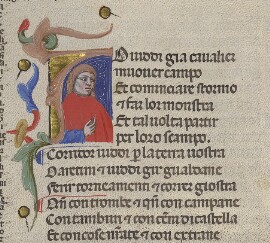 Io uiddi gia caualier
muouer campo
Et cominciare stormo
et far lor monstra
Et tal uolta partir
per loro scampo.
Corritor uiddi per la terra uostra
O aretini et uiddi gir gualdane
ferir torneamenti et correr giostra
Quando con trombe et quando con campane
Con tamburi et con cenni di castella
Et con cose nostrate et con extrane